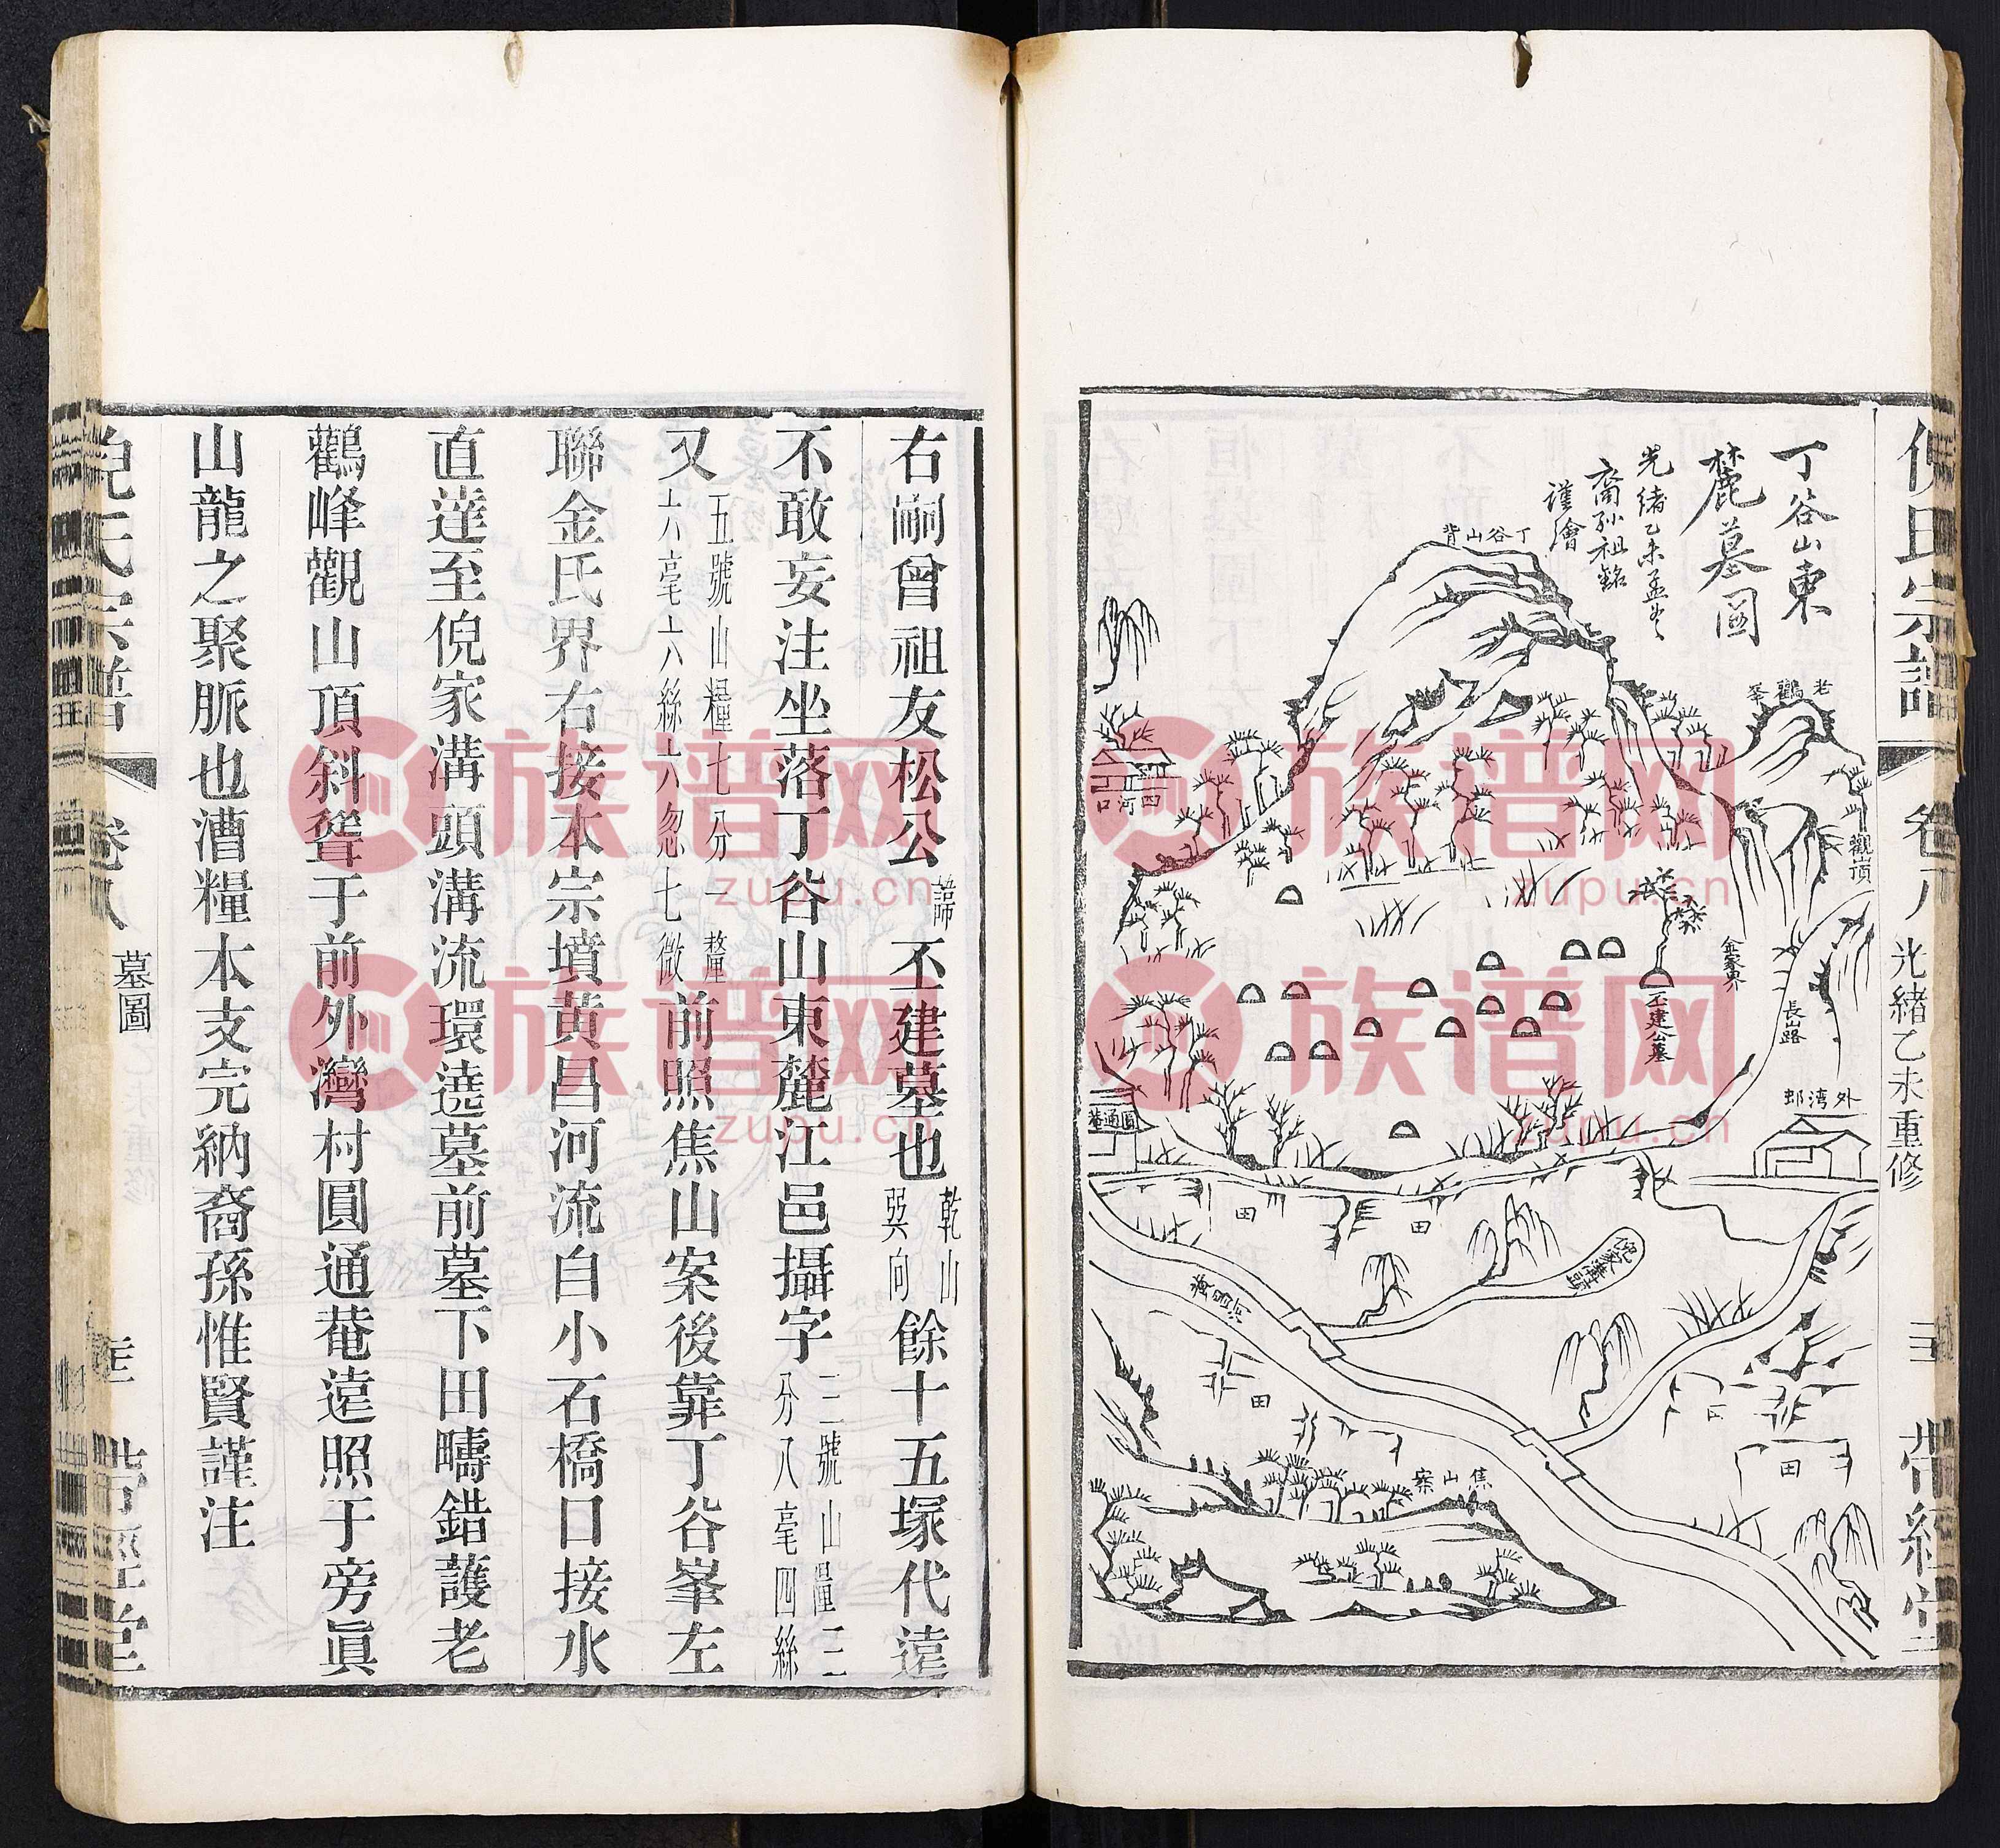 倪氏宗譜
卷八
光緒乙未重修
帶經堂
丁谷山東
麓墓圖
光緒乙未孟冬
裔孫祖銘
謹繪
丁谷山背
老鸛峯
觀山頂
四河口
金家界
丕建公墓
長山路
外湾邨
圓通菴
田
田
倪家溝頭
黃昌河
田
田
焦山案
右嗣曾祖友松公諱丕建墓也乾山巽向餘十五塚代遠
不敢妄注坐落丁谷山東麓江邑攝字三號山糧三分八毫四絲
又五號山糧七分一釐六毫六絲六忽七微前照焦山案後靠丁谷峯左
聯金氏界右接本宗墳黃昌河流自小石橋口接水
直達至倪家溝頭溝流環遶墓前墓下田疇錯護老
鸛峰觀山頂斜聳于前外灣村圓通菴遠照于旁眞
山龍之聚脈也漕糧本支完納裔孫惟賢謹注
倪氏宗譜
卷八
墓圖
帶經堂
族谱网
zupu.cn
族谱网
zupu.cn
族谱网
zupu.cn
族谱网
zupu.cn